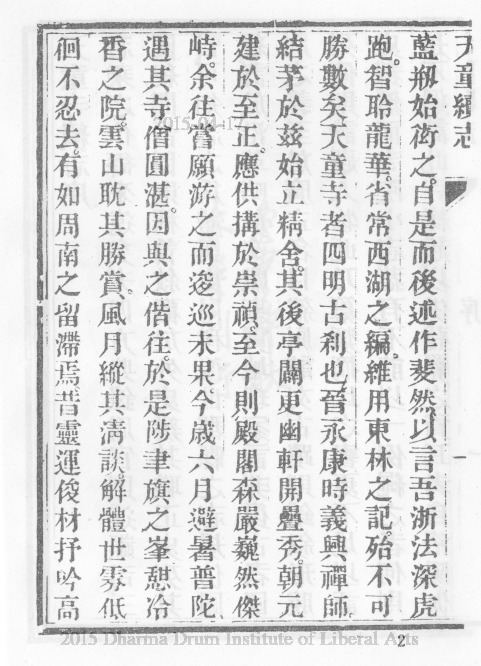 天童續志
一
藍刱始衒之。自是而後述作斐然。以言吾浙法深虎
跑。智聆龍華。省常西湖之編。維用東林之記。殆不可
勝數矣。天童寺者四明古刹也。晉永康時義興禪師
結茅於茲始立精舍。其後亭闢更幽軒開疊秀。朝元
建於至正。應供搆於崇禎。至今則殿閣森嚴巍然傑
峙。余往嘗願游之而逡巡未果今歲六月避暑普陀
遇其寺僧圓湛。因與之偕往。於是陟聿旗之峯憇冷
香之院。雲山耽其勝賞。風月縱其淸談。解體世雰低
徊不忍去。有如周南之留滯焉。昔靈運俊材抒吟高
2015-04-17
2015 Dharma Drum Institute of Liberal Arts
2